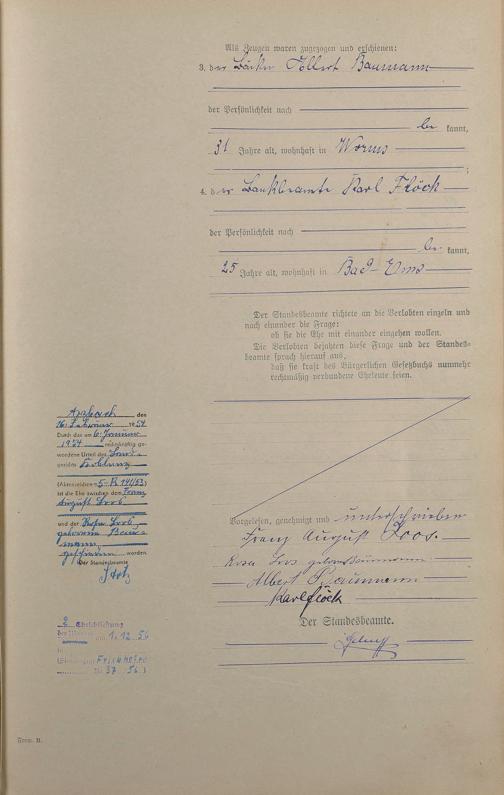 Als Zeugen waren zugezogen und erschienen:
3. der Bäcker Albert Baumann
der Persönlichkeit nach
be kannt,
31 Jahre alt, wohnhaft in Worms
;
4. der Bankbeamte Karl Flöck
der Persönlichkeit nach
be kannt,
25 Jahre alt, wohnhaft in Bad-Ems
Der Standesbeamte richtete an die Verlobten einzeln und
nach einander die Frage:
ob sie die Ehe mit einander eingehen wollen.
Die Verlobten bejahten diese Frage und der Standes-
beamte sprach hierauf aus,
daß sie kraft des Bürgerlichen Gesetzbuchs nunmehr
rechtmäßig verbundene Eheleute seien.
Vorgelesen, genehmigt und unterschrieben
Franz August Loos.
Rosa Loos geborene Baumann
Albert Baumann
Karl Flöck
Der Standesbeamte.
Arzbach, den
16. Februar 1954
Durch das am 6. Januar
1954 rechtskräftig ge-
wordene Urteil des Land-
gerichts Koblenz
(Aktenzeichen 5 R 141/53)
ist die Ehe zwischen dem Franz
August Loos
und der Rosa Loos,
geborene Bau-
mann,
geschieden worden.
Der Standesbeamte
2. Eheschließung
des Mannes am 1.12.56
in
Frickhofen
Nr. 37 56)
Form. B.